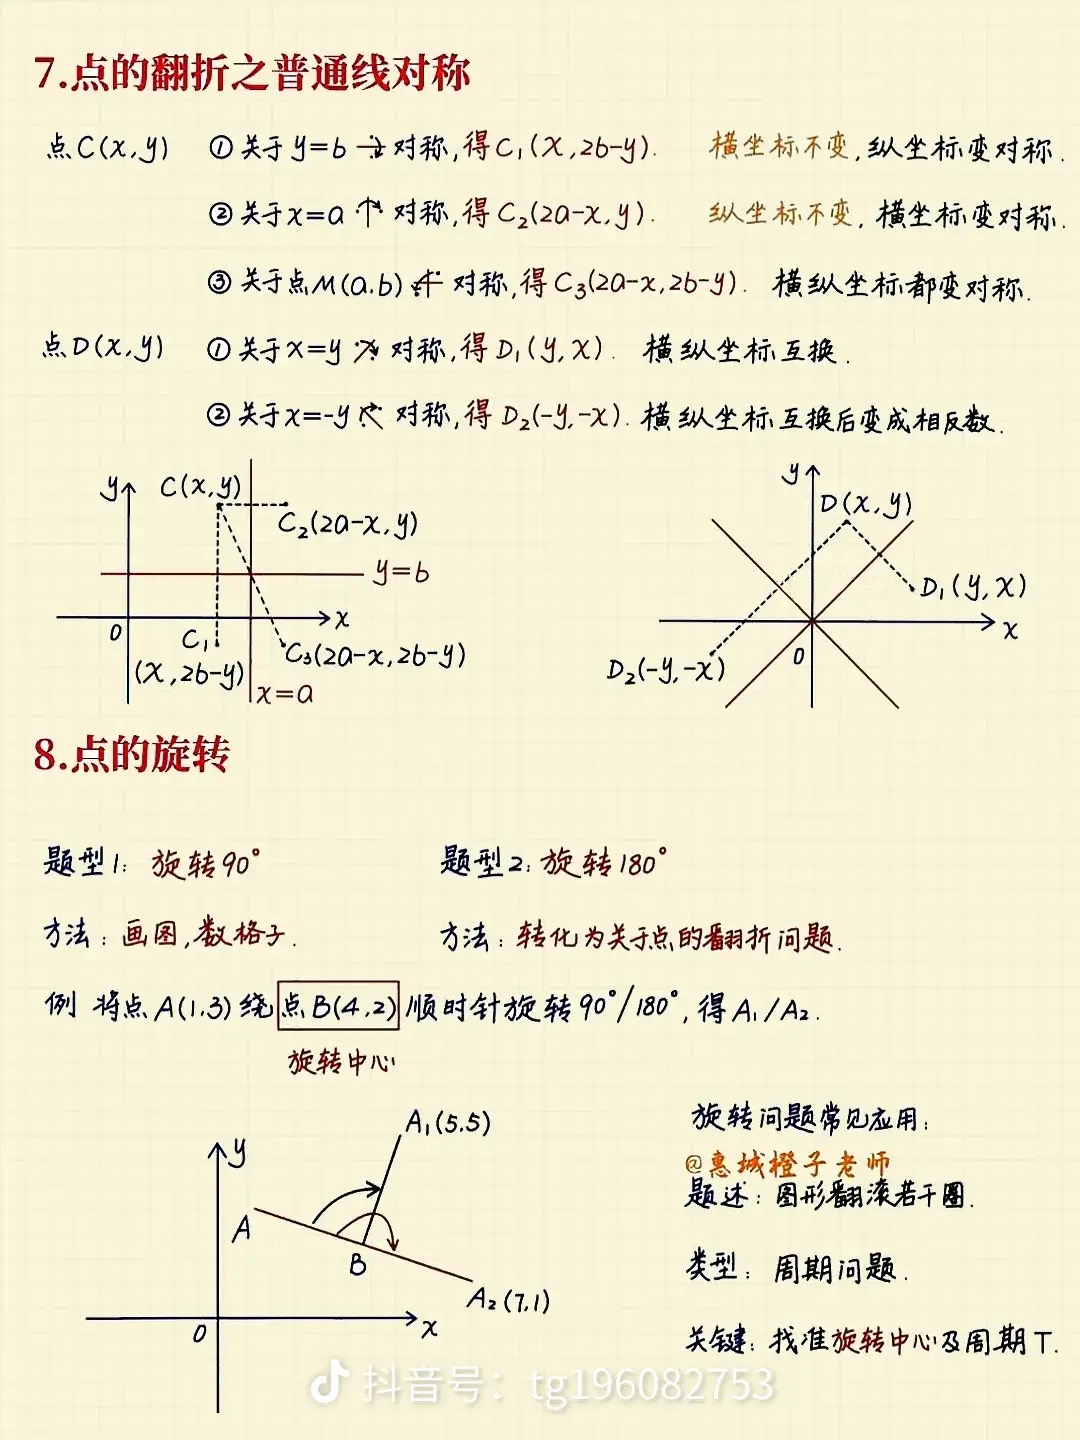 7.点的翻折之普通线对称
点C(x,y) ①关于y=b对称,得C₁(x,2b-y). 横坐标不变,纵坐标变对称.
②关于x=a对称,得C₂(2a-x,y). 纵坐标不变,横坐标变对称.
③关于点M(a.b)对称,得C₃(2a-x,2b-y). 横纵坐标都变对称.
点D(x,y) ①关于x=y对称,得D₁(y,x). 横纵坐标互换.
②关于x=-y对称,得D₂(-y,-x). 横纵坐标互换后变成相反数.
y C(x,y)
C₂(2a-x,y)
y=b
x
0
C₁
(x,2b-y)
C₃(2a-x,2b-y)
x=a
y
D(x,y)
D₁(y,x)
x
0
D₂(-y,-x)
8.点的旋转
题型1: 旋转90° 题型2:旋转180°
方法:画图,数格子. 方法:转化为关于点的翻折问题.
例 将点A(1.3)绕点B(4.2)顺时针旋转90°/180°,得A₁/A₂.
旋转中心
A₁(5.5)
y
A
B
A₂(7.1)
0
x
旋转问题常见应用:
@惠城橙子老师
题述:图形翻滚若干圈.
类型: 周期问题.
关键:找准旋转中心及周期T.
抖音号：tg196082753